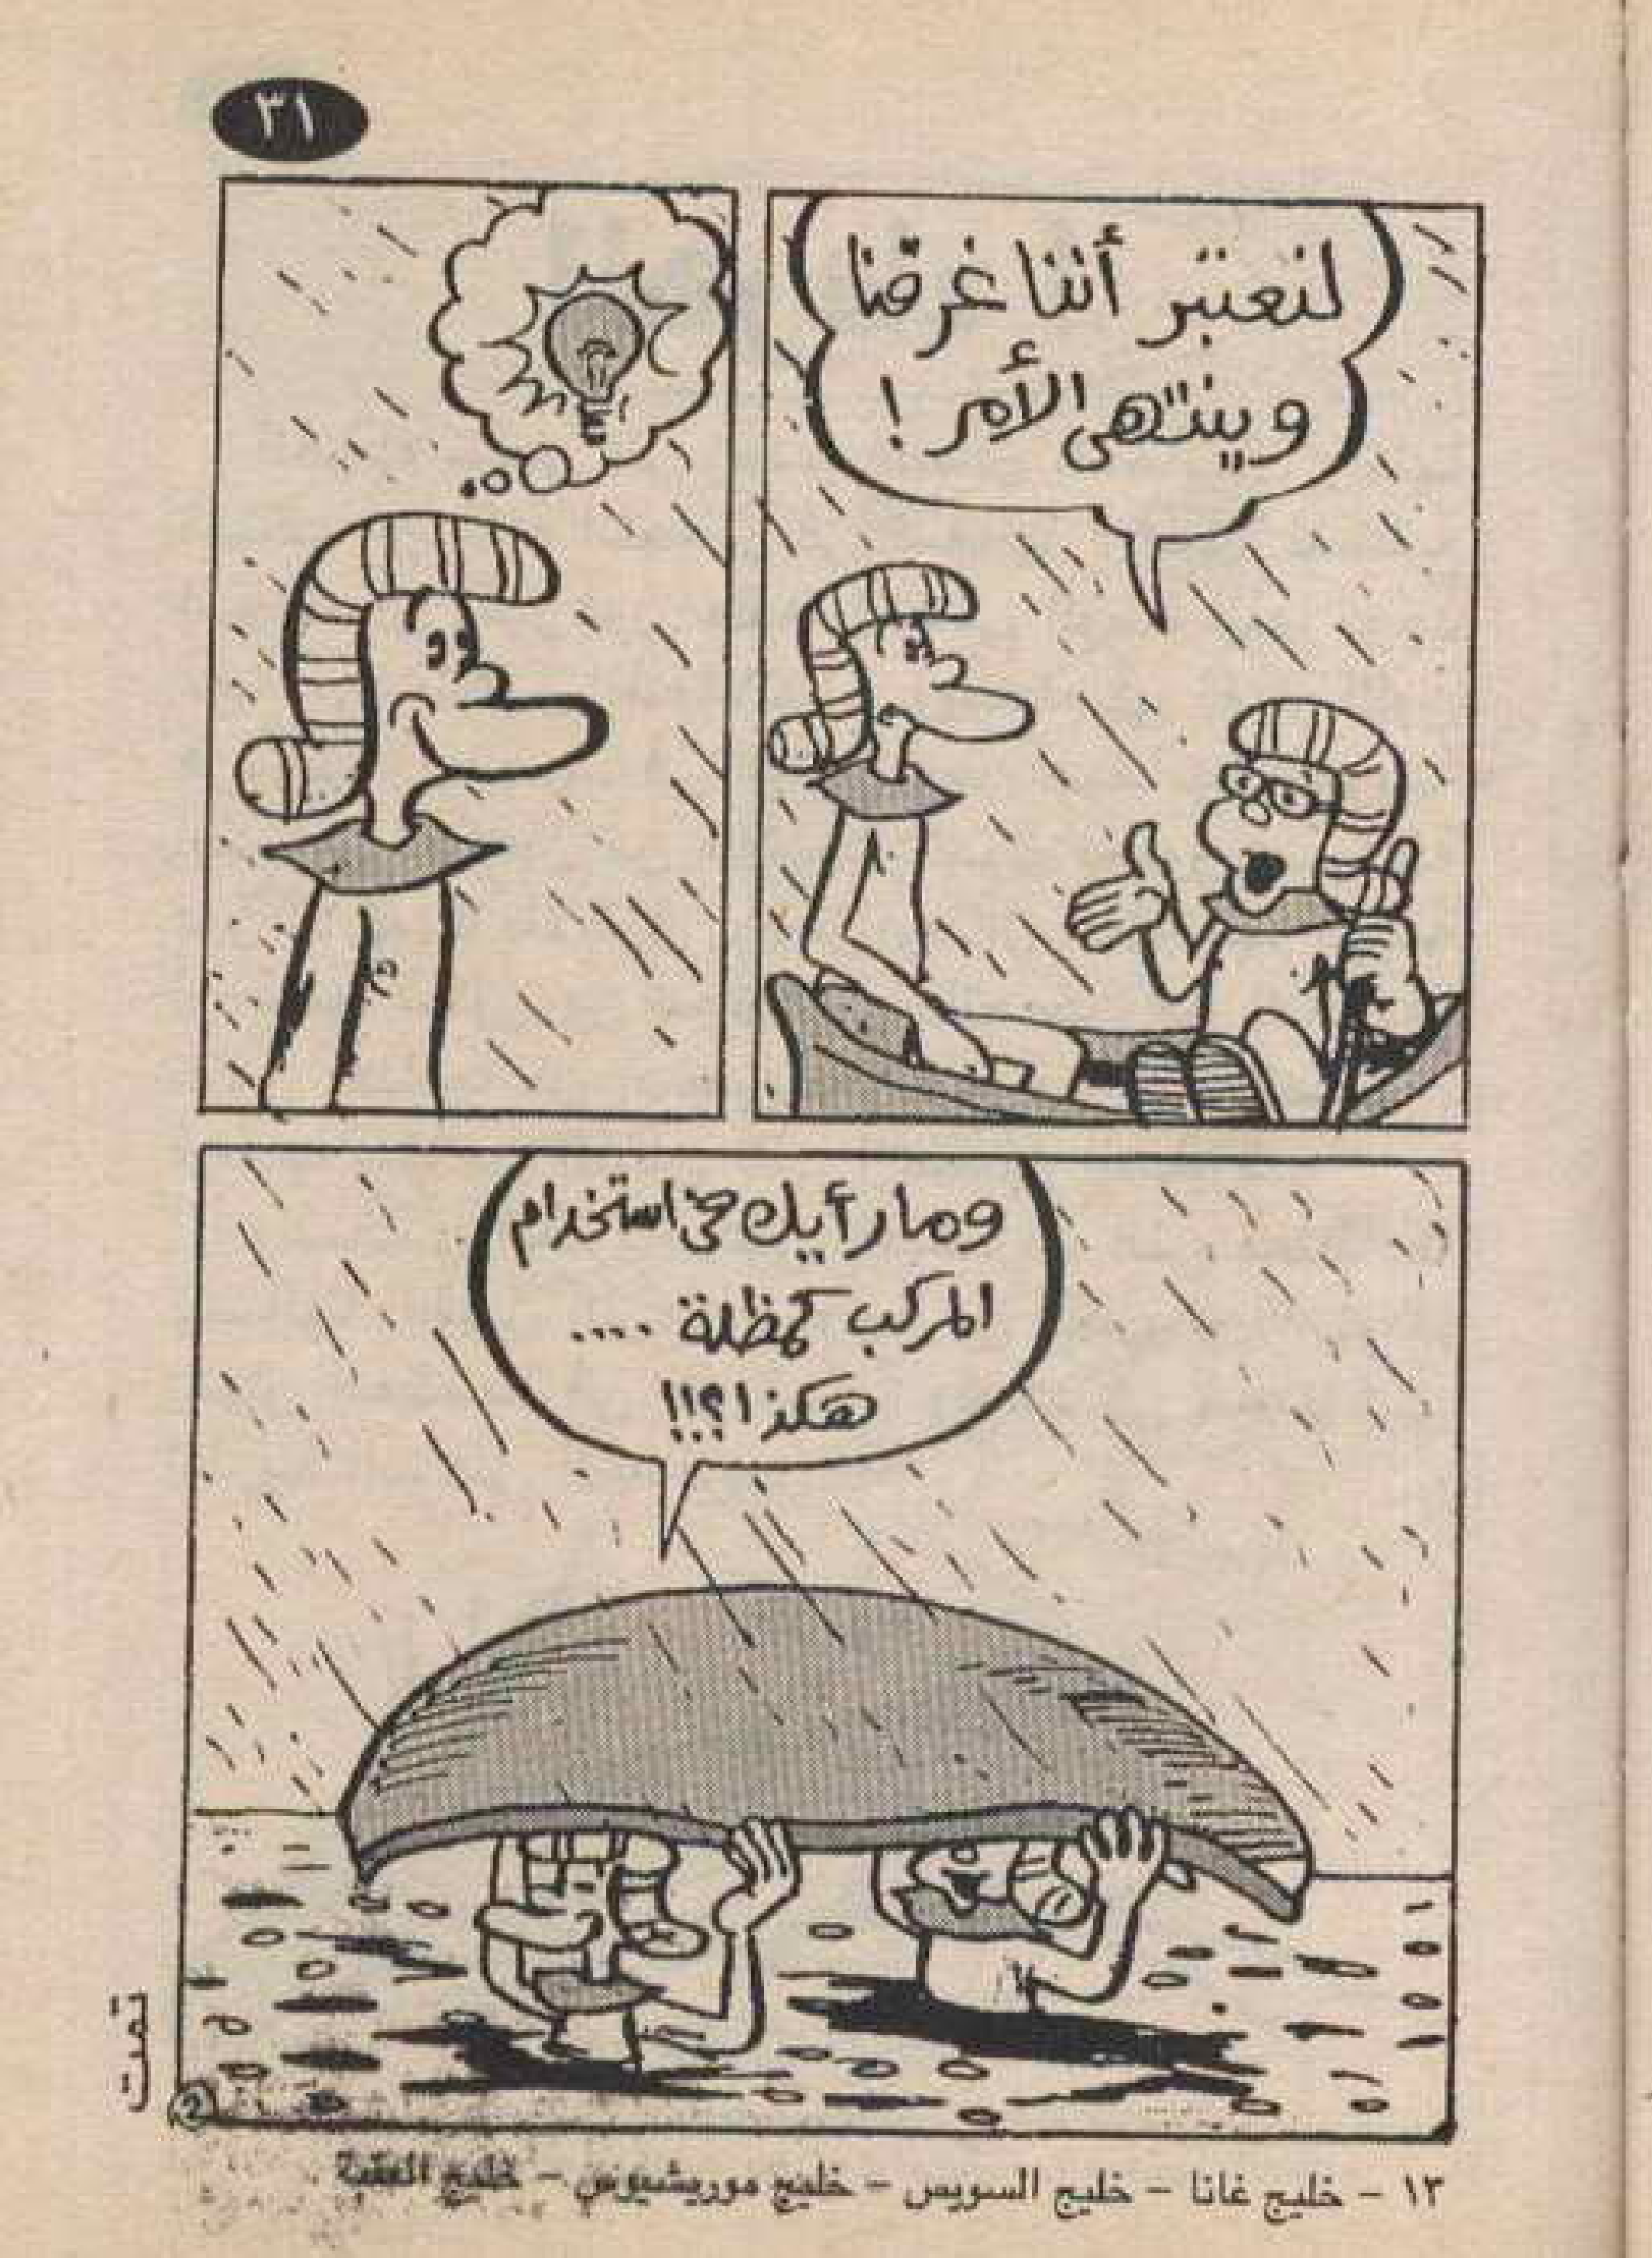 ٣١
لنعتبر أننا غرقنا
وينتهى الأمر !
وما رأيك فى استخدام
المركب كمظلة ....
هكذا ؟!!!
تمت
2
١٣ - خليج غانا - خليج السويس - خليج موريشيوس - خليج العقبة